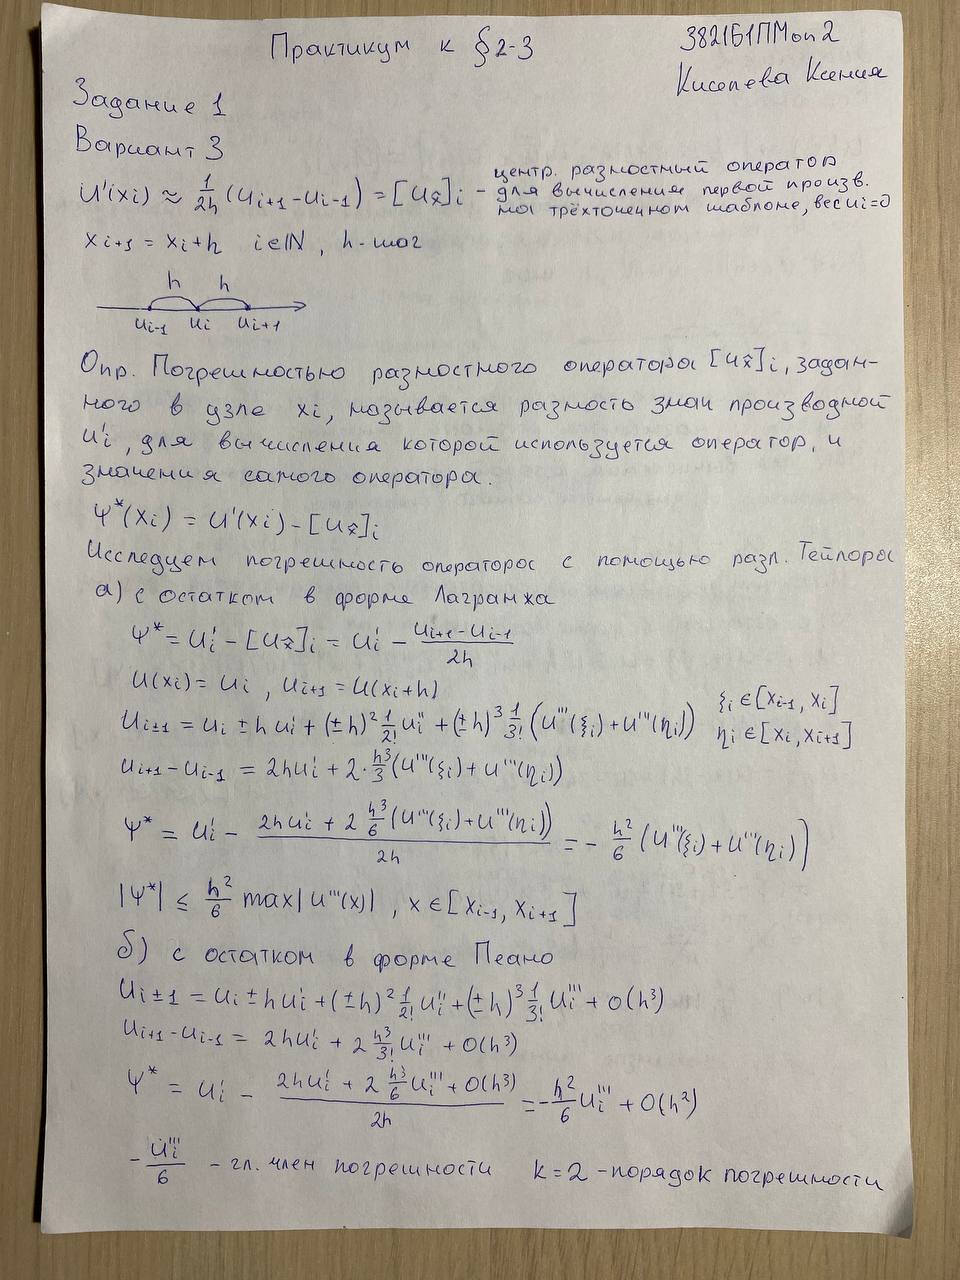 Практикум к §2-3
3821Б1ПМоп2
Киселева Ксения
Задание 1
Вариант 3
U'(xi) ≈ 1/2h (Ui+1 - Ui-1) = [Ux̂]i - центр. разностный оператор
для вычисления первой произв.
на трёхточечном шаблоне, вес ui=0
xi+1 = xi + h i∈ℕ, h - шаг
h h
ui-1 ui ui+1
Опр. Погрешностью разностного оператора [Ux̂]i, задан-
ного в узле xi, называется разность знач производной
U'i, для вычисления которой используется оператор, и
значения самого оператора.
Ψ*(xi) = U'(xi) - [Ux̂]i
Исследуем погрешность оператора с помощью разл. Тейлора
а) с остатком в форме Лагранжа
Ψ* = U'i - [Ux̂]i = U'i - (Ui+1 - Ui-1)/2h
U(xi) = Ui, Ui+1 = U(xi+h)
Ui±1 = Ui ± hU'i + (±h)² 1/2! U''i + (±h)³ 1/3! (U'''(ξi) + U'''(ηi)) ξi ∈ [xi-1, xi]
ηi ∈ [xi, xi+1]
Ui+1 - Ui-1 = 2hU'i + 2·h³/3 (U'''(ξi) + U'''(ηi))
Ψ* = U'i - (2hU'i + 2 h³/6 (U'''(ξi) + U'''(ηi)))/2h = - h²/6 (U'''(ξi) + U'''(ηi))
|Ψ*| ≤ h²/6 max|U'''(x)|, x ∈ [xi-1, xi+1]
б) с остатком в форме Пеано
Ui±1 = Ui ± hU'i + (±h)² 1/2! U''i + (±h)³ 1/3! U'''i + O(h³)
Ui+1 - Ui-1 = 2hU'i + 2 h³/3! U'''i + O(h³)
Ψ* = U'i - (2hU'i + 2 h³/6 U'''i + O(h³))/2h = - h²/6 U'''i + O(h²)
- U'''i/6 - гл. член погрешности k=2 - порядок погрешности